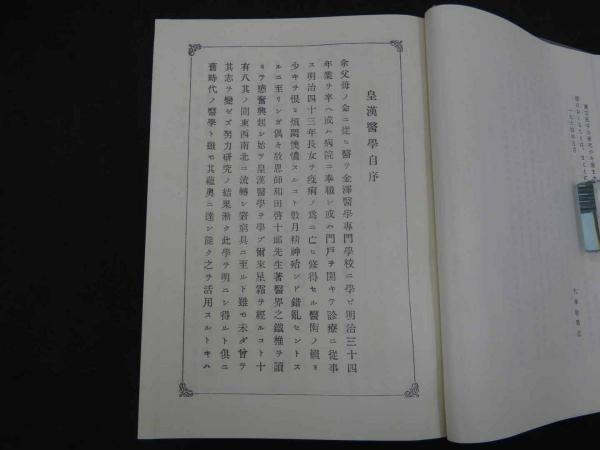 皇漢醫學自序
余父母ノ命ニ從ヒ醫ヲ金澤醫學專門學校ニ學ビ明治三十四
年業ヲ卒ヘ或ハ病院ニ奉職シ或ハ門戸ヲ開キテ診療ニ從事
ス明治四十三年長女ヲ疫痢ノ爲ニ亡ヒ修得セル醫術ノ賴ミ
少キヲ恨ミ煩悶懊憹スルコト數月精神殆ンド錯亂セントス
ルニ至リシガ偶々故恩師和田啓十郎先生著醫界之鐵椎ヲ讀
ミテ感奮興起シ始ヲ皇漢醫學ヲ學ブ爾來星霜ヲ經ルコト十
有八其ノ間東西南北ニ流轉シ窘窮具ニ至ルト雖モ未ダ曾テ
其志ヲ變ゼズ努力研究ノ結果漸ク此學ヲ明ニシ得ルト俱ニ
舊時代ノ醫學ト雖モ其蘊奥ニ達シ能ク之ヲ活用スルトキハ